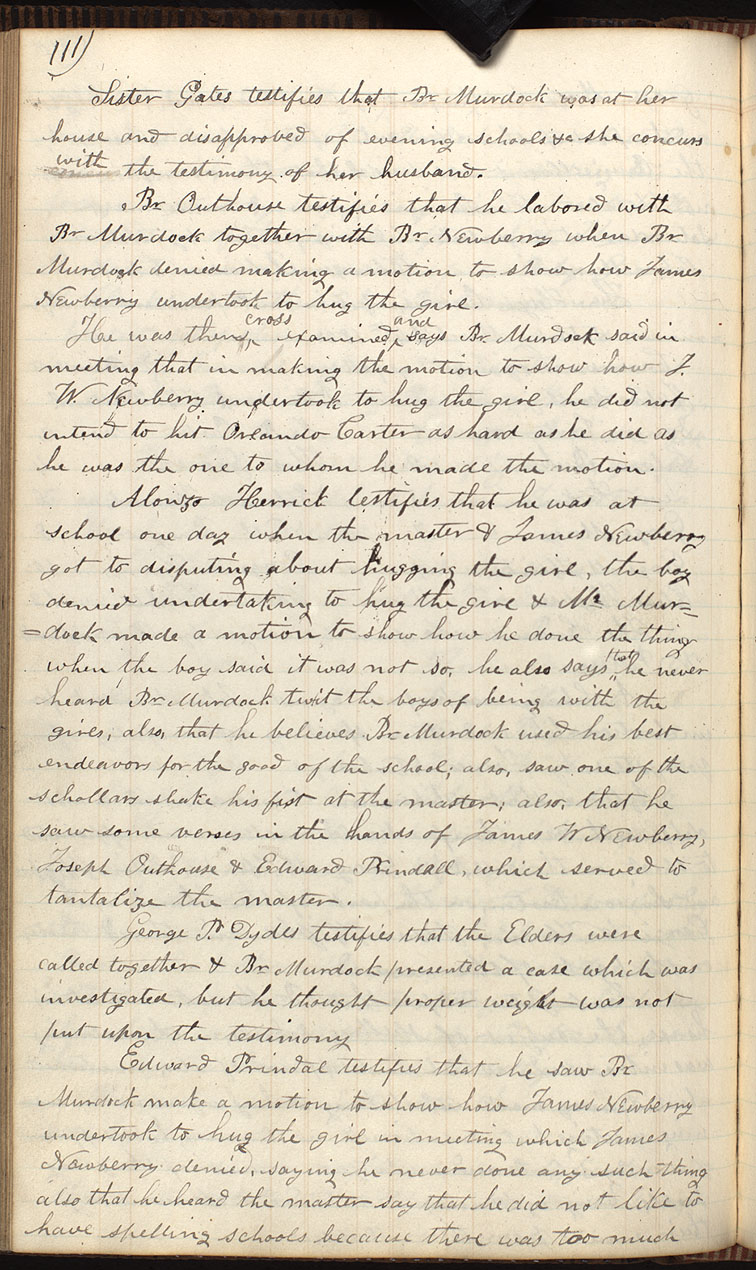 111)
Sister Gates testifies that Br Murdock was at her
house and disapproved of evening schools &c she concurs
with the testimony of her husband.
Br. Outhouse testifies that he labored with
Br Murdock together with Br. Newberry when Br
Murdock denied making a motion to show how James
Newberry undertook to hug the girl.
He was then, cross examined, and says Br. Murdock said in
meeting that in making the motion to show how J.
W. Newberry undertook to hug the girl, he did not
intend to hit Orlando Carter as hard as he did as
he was the one to whom he made the motion.
Alonzo Herrick testifies that he was at
school one day when the master & James Newberry
got to disputing about hugging the girl, the boy
denied undertaking to hug the girl & Mr Mur=
=dock made a motion to show how he done the thing
when the boy said it was not so, he also says that he never
heard Br Murdock twit the boys of being with the
gires, also, that he believes Br Murdock used his best
endeavors for the good of the school; also, saw one of the
schollars shake his fist at the master; also, that he
saw some verses in the hands of James W Newberry,
Joseph Outhouse & Edward Prindall, which served to
tantalize the master.
George P. Dykes testifies that the Elders were
called together & Br Murdock presented a case which was
investigated, but he thought proper weight was not
put upon the testimony
Edward Prindal testifies that he saw Br
Murdock make a motion to show how James Newberry
undertook to hug the girl in meeting which James
Newberry denied, saying he never done any such thing
also that he heard the master say that he did not like to
have spelling schools because there was too much